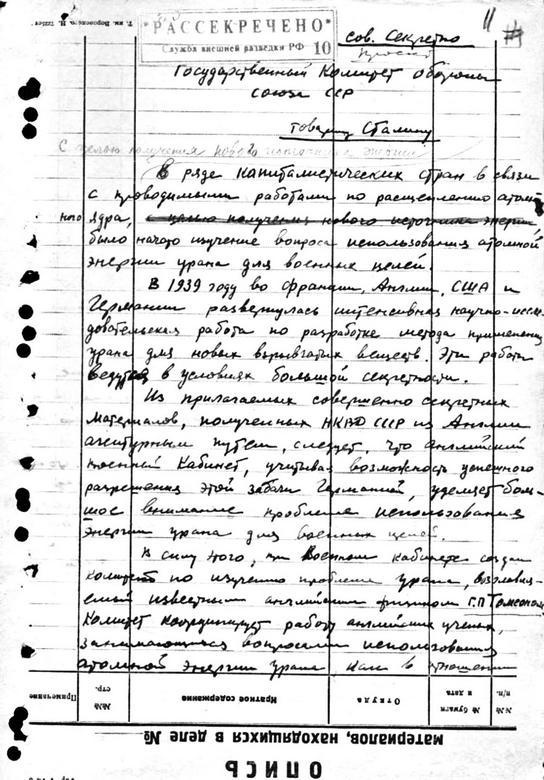 "РАССЕКРЕЧЕНО"
Служба внешней разведки РФ 10
сов. Секретно
11
Государственный Комитет Обороны
Союза ССР
товарищу Сталину
С целью получения нового источника энергии
В ряде капиталистических стран в связи
с проводимыми работами по расщеплению атом
ного ядра, с целью получения нового источника энергии,
было начато изучение вопроса использования атомной
энергии урана для военных целей.
В 1939 году во Франции, Англии, США и
Германии развернулась интенсивная научно-иссле
довательская работа по разработке метода применения
урана для новых взрывчатых веществ. Эти работы
ведутся в условиях большой секретности.
Из прилагаемых совершенно секретных
материалов, полученных НКВД СССР из Англии
агентурным путем, следует, что английский
военный Кабинет, учитывая возможность успешного
разрешения этой задачи Германией, уделяет боль-
шое внимание проблеме использования
энергии урана для военных целей.
В силу этого, при Военном кабинете создан
комитет по изучению проблемы урана, возглавля-
емый известным английским физиком Г.П. Томсоном.
Комитет координирует работу английских ученых,
занимающихся вопросами использования
атомной энергии урана как в отношении
№№ п/п.
№ бумаги и дата
Откуда
Краткое содержание
№№ стр.
Примечание
материалов, находящихся в деле №
ОПИСЬ